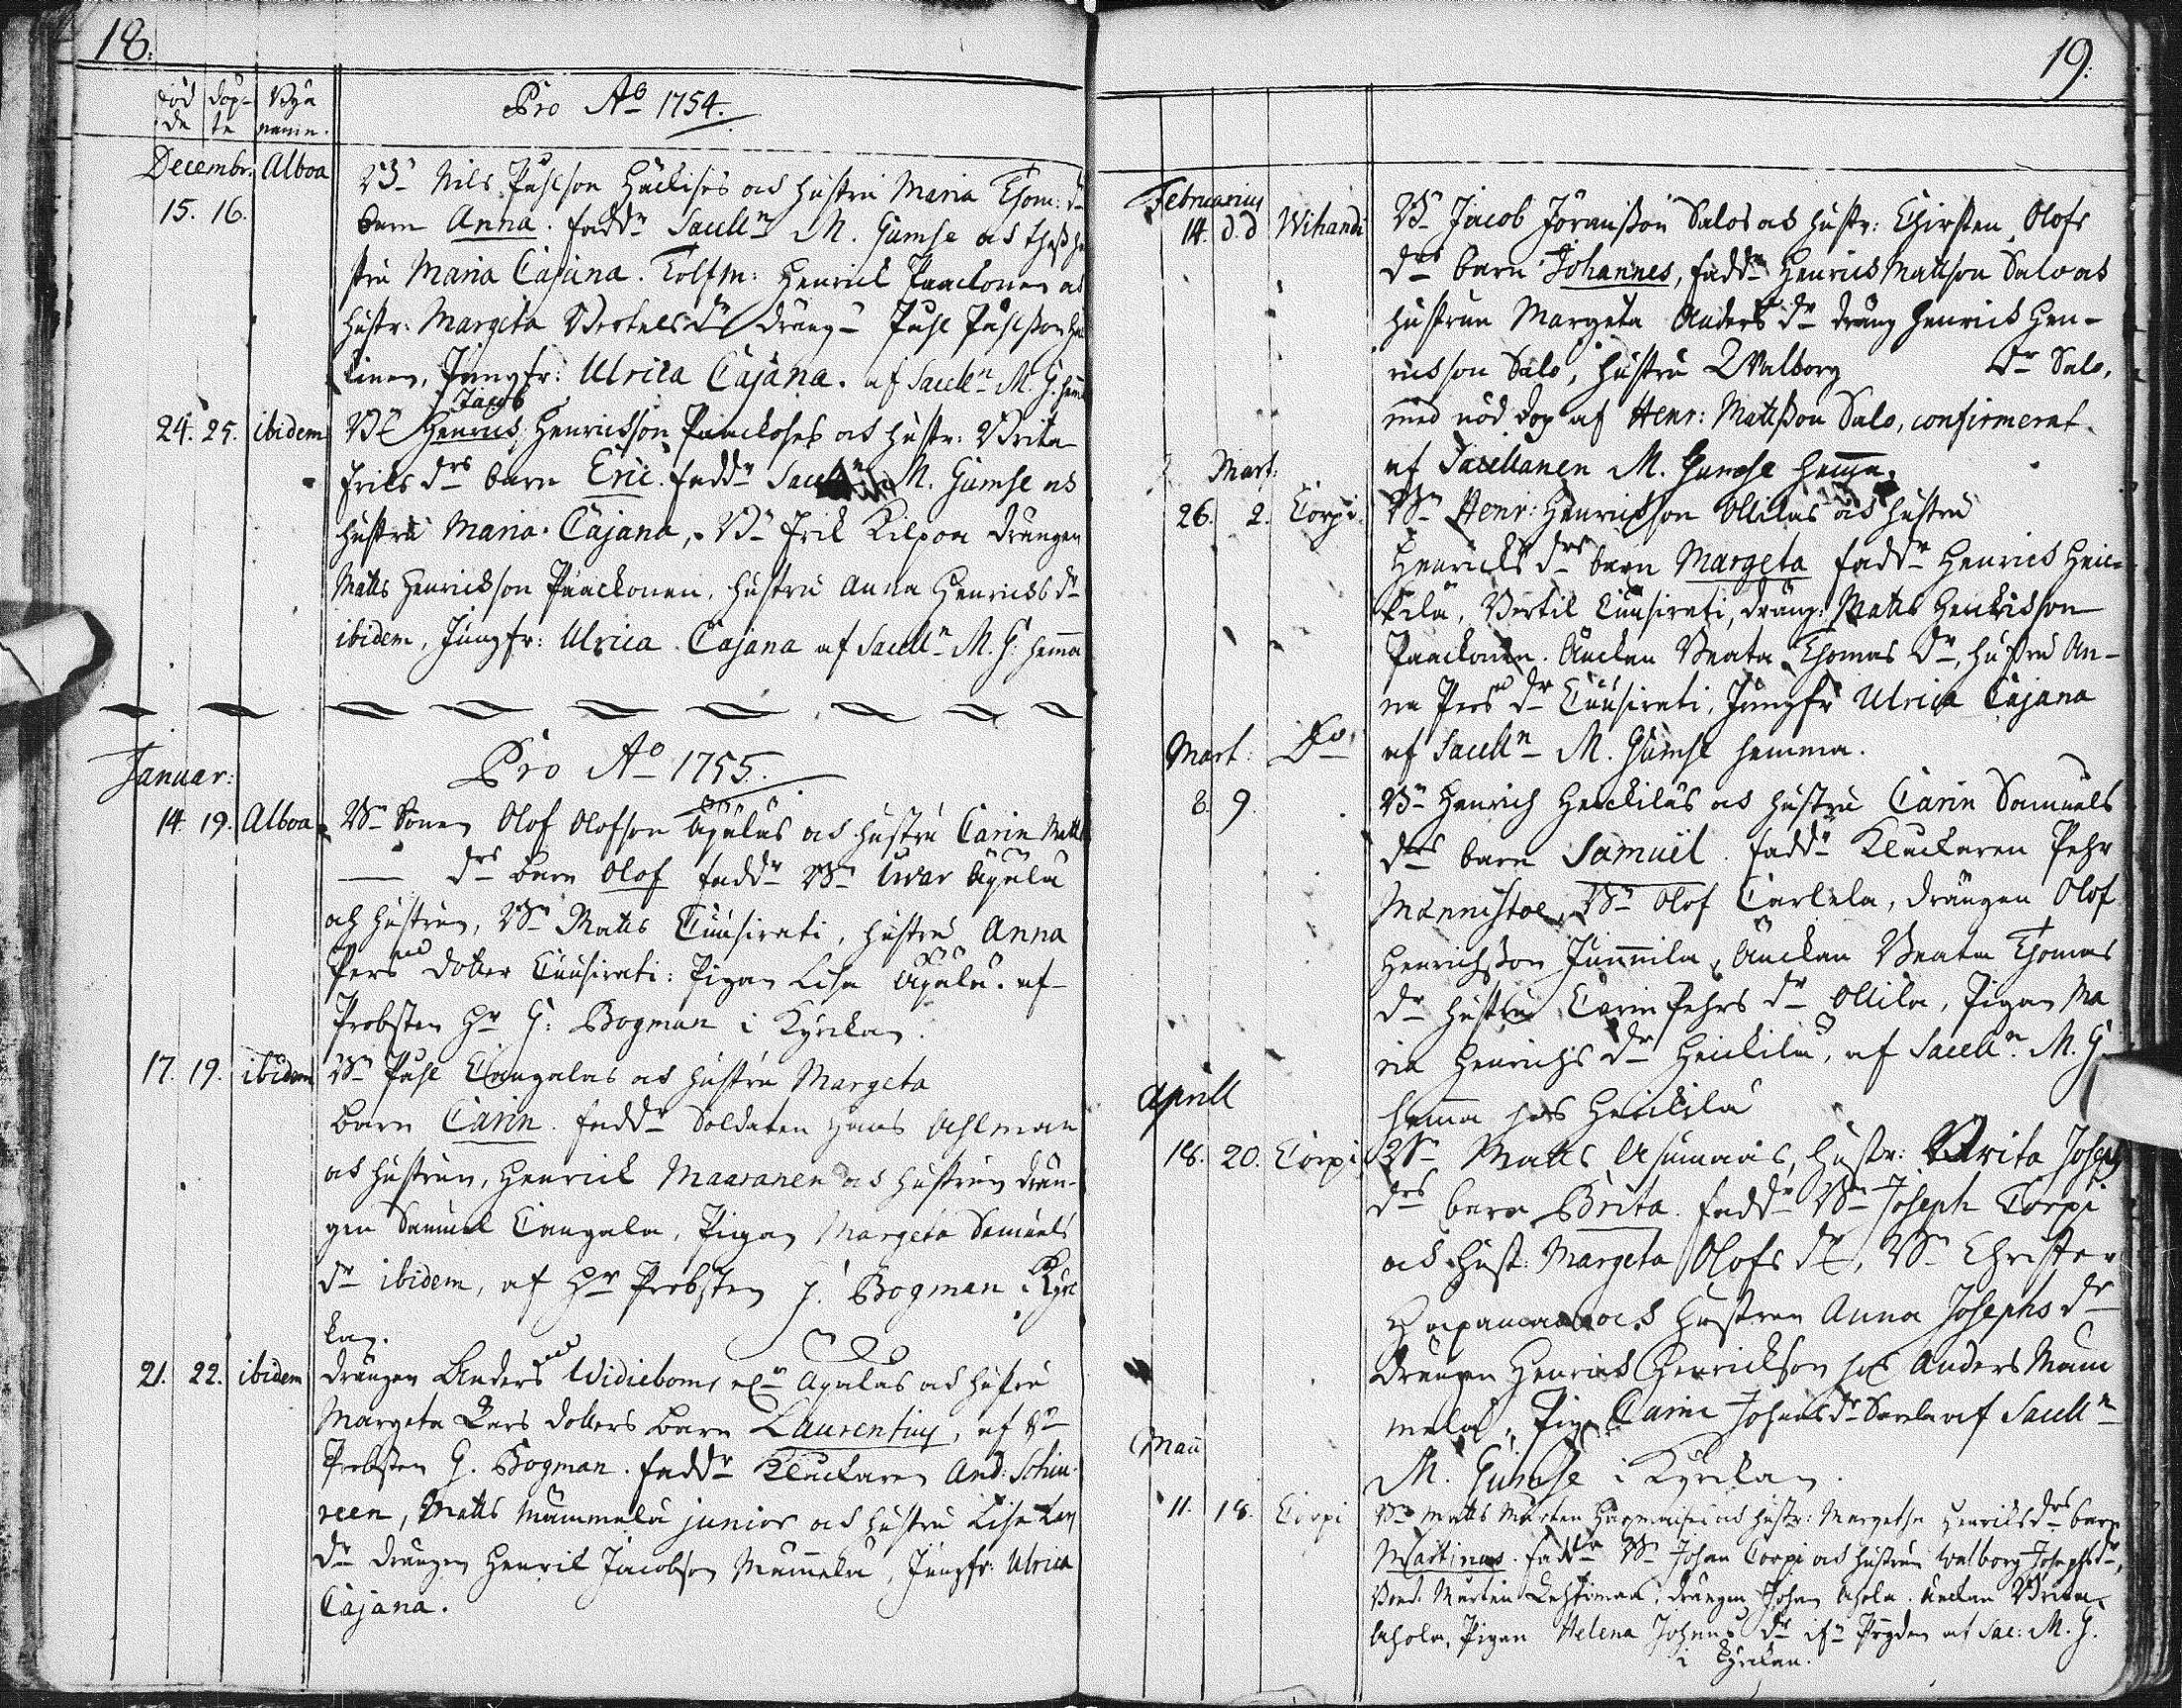 18.
föd
de
döp-
te
Bya
namn.
Pro Ao 1754.
Decembr. Alboa
Bn Nils Påhlson Häckises och hustru Maria Thom: dr
15. 16.
barn Anna. fadd: Sacelln M. Gumse och thess hu
stru Maria Cajana. Tolfm: Henrick Paackonen och
hustr: Margeta Bertels dr dräng Påhl Påhlsson
kinen, Jungfr: Ulrica Cajana. af Sacelln M. G. hem
Jacob
24. 25. ibidem
Bn Henrics Henricsson Paackoses och hustr: Brita
Eriks drs barn Eric. fadd: Sacelln M. Gumse och
hustru Maria Cajana, Bn Erik Kilpoa drängen
Matts Henricksson Paackonen, hustru Anna Henricks dr
ibidem, Jungfr: Ulrica Cajana af Sacelln M. G. hemma
Pro Ao 1755.
Januar:
14. 19. Alboa
Bn Sonen Olof Olofson Äpäläs och hustru Carin Matts
drs barn Olof fadd: Bn Ivar Äpälä
och hustrun, Bn Matts Tuusirati, hustru Anna
Pers dotter Tuusirati: Pigan Lisa Äpälä. af
Probsten Hr G: Bogman i Kyrckan.
17. 19. ibidem
Bn Påhl Cangalas och hustru Margeta
barn Carin. fadd: Soldaten Hans Ahlman
och hustrun, Henrick Maaranen och hustrun drän-
gen Samuel Cangala, Pigan Margeta Samuels
dr ibidem, af Hr Probsten G. Bogman i Kyrc
kan.
21. 22. ibidem
drängen Anders Widieboms Äpäläs och hustru
Margeta Lars dotters barn Laurentius, af Hr
Probsten G. Bogman. fadd: Kluckaren And: Schu-
reen, Matts Mämmelä junior och hustru Lisa Lars
dr drängen Henrik Jacobson Mämmelä, Jungfr: Ulrica
Cajana.
19.
Februarius
14. d.d Wihandi
Bn Jacob Jöransson Salos och hustr: Chirsten Olofs
drs barn Johannes, fadd: Henrics Mattson Salo och
hustrun Margeta Anders dr dräng Henrick Hen-
ricsson Salo, hustru Walborg dr Salo,
med nöd dop af Henr: Mattsson Salo, confirmerat
af Sacellanen M. Gumse hemma.
Mart:
26. 2. Corpi.
Bn Henr: Henricsson Ollilas och hustru
Henricks drs barn Margeta fadd: Henrics Heic-
kilä, Bertil Tuusirati, dräng: Matts Henricksson
Paackonen. Änckan Beata Thomas dr, hustru An-
na Pers dr Tuusirati, Jungfr Ulrica Cajana
af Sacelln M. Gumse hemma.
Mart: Do
8. 9.
Bn Henrich Heickiläs och hustru Carin Samuels
drs barn Samuel. fadd: Kluckaren Pehr
Mannistoe, Bn Olof Carlela, drängen Olof
Henrichsson Junnila, Änckan Beata Thomas
dr hustru Carin Pehrs dr Ollila, Pigan Ma
ria Henrichs dr Heickilä, af Sacelln M. G
hemma hos Heickilä
Aprill
18. 20. Corpi
Bn Matts Asumaas, hustr: Brita Josephs
drs barn Brita. fadd: Bn Joseph Corpi
och hust: Margeta Olofs dr, Bn Christer
och hustrun Anna Josephs dr
drängen Henrick Henrickson hos Anders Mäm
melä, Pig: Carin Johans dr Savela af Sacelln
M. Gumse i Kyrckan.
Maii
11. 18. Corpi
Bn Matts Mårten och hustr: Margetha Henriks drs barn
Martinus. fadd: Bn Johan Corpi och hustrun Walborg Josephs dr,
Bond. Mårten Lehtomaa, drängen Johan Ahola. Änckan Brita
Ahola, Pigan Helena Johans dr af Sac: M. G.
i Kyrckan.